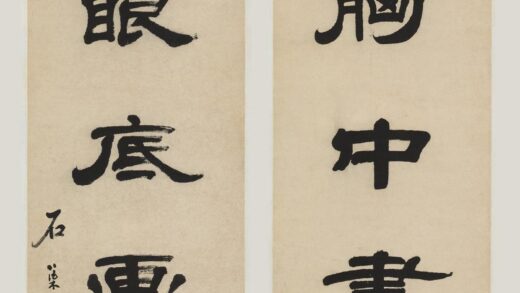 胸中書
眼底画
石